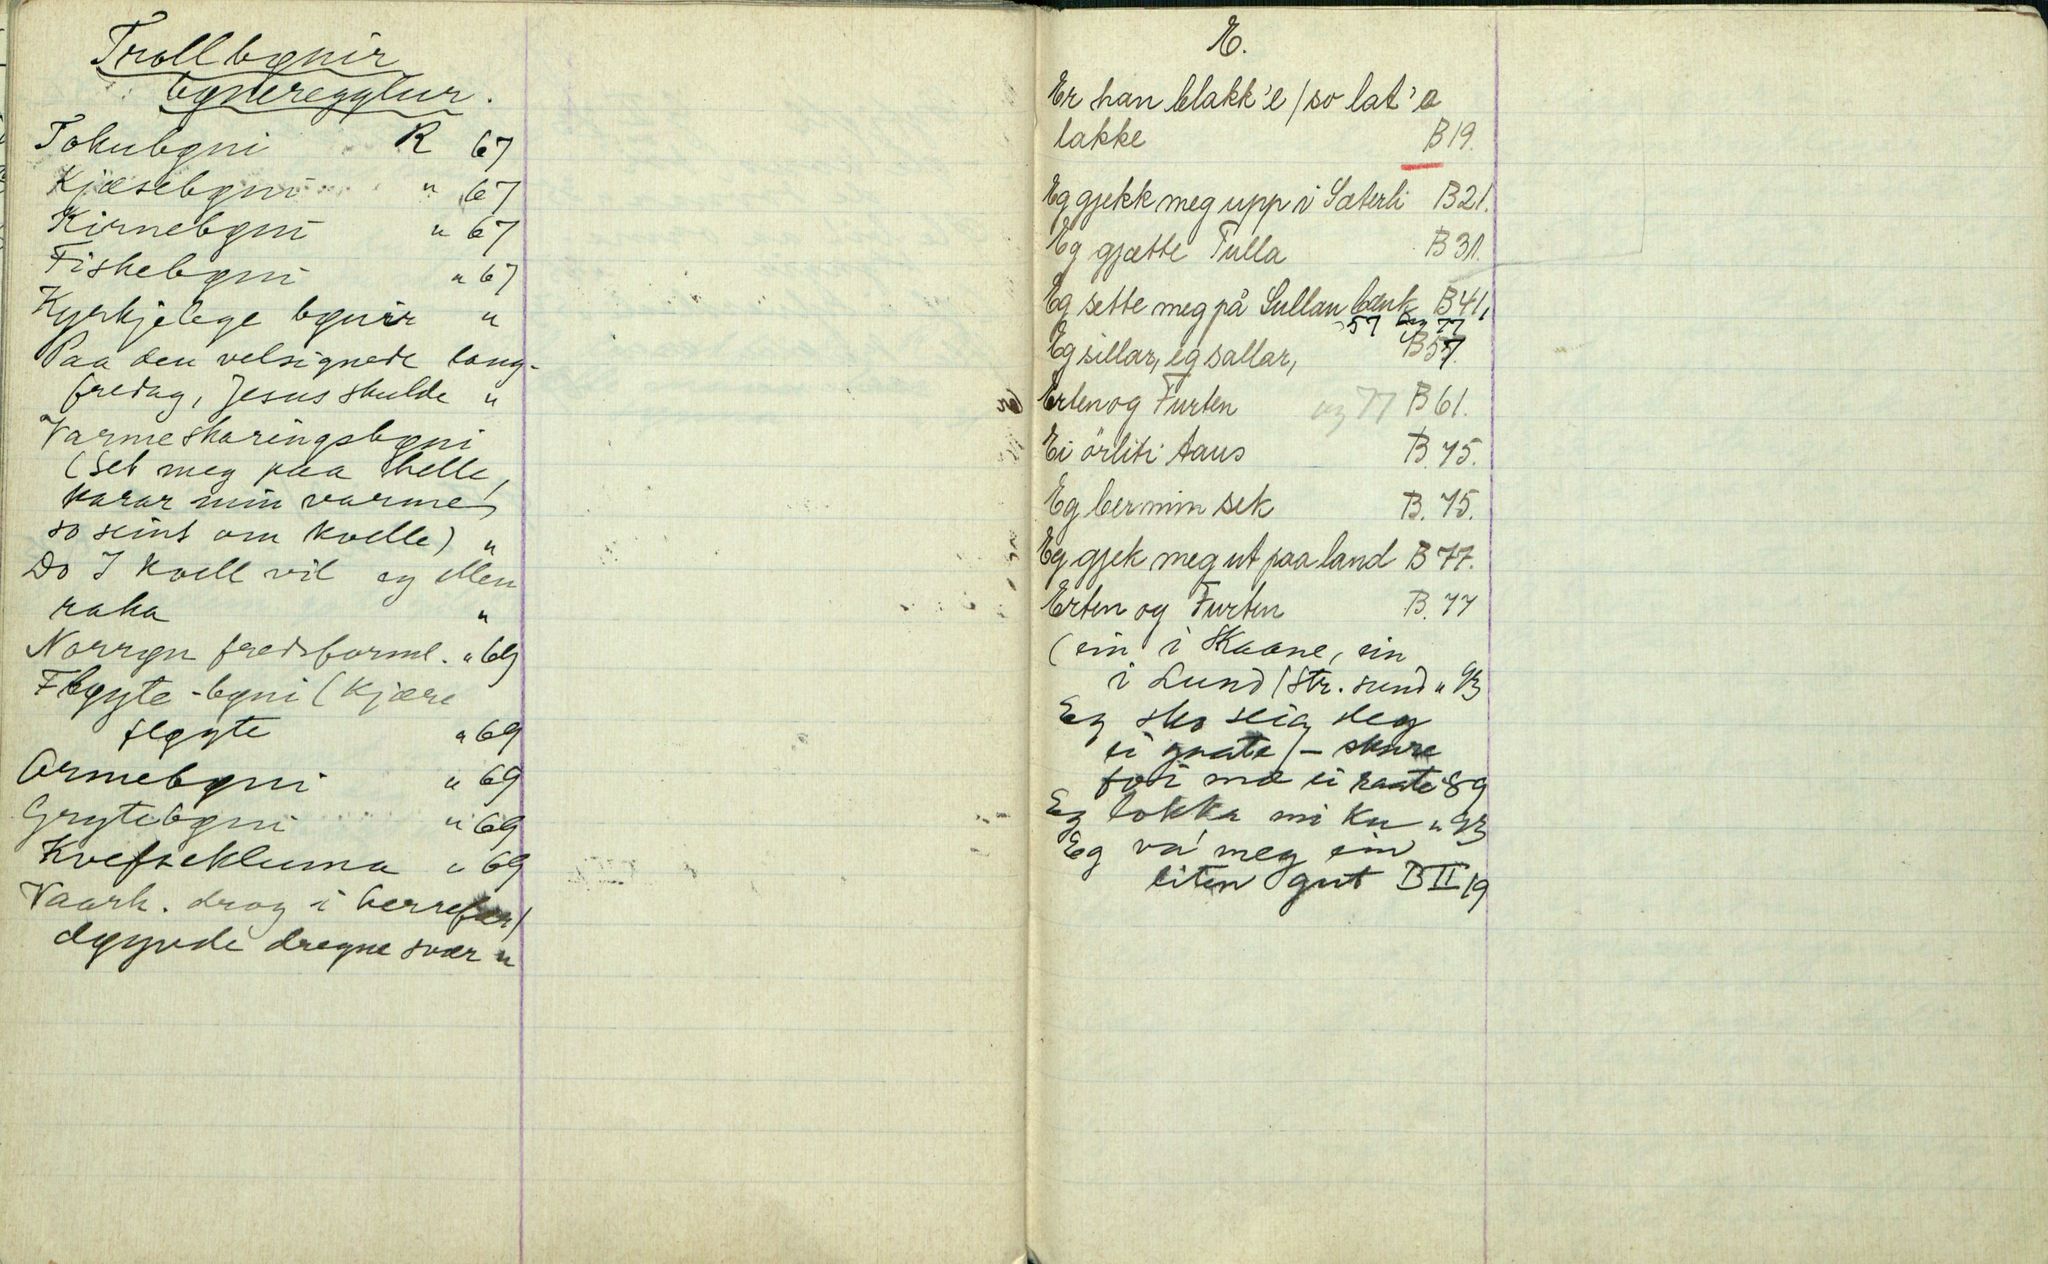 Trollbønir
bønereglur.
Tokubøni R 67
Kjæsebøni " 67
Kirnebøni " 67
Fiskebøni " 67
Kyrkjelege bønir "
Paa den velsignede lang-
fredag, Jesus skulde "
Varmeskaringsbøni
(Set meg paa helle,
karar min varme
so seint om kvelle) "
Do I kvell vil eg ellen
raka "
Norrøn fredsforml. " 69
Fløyte-bøni (Kjære
fløyte " 69
Ormebøni " 69
Grytebøni " 69
Kvefsekluma " 69
Vaark. drog i
døyvde dregne svær "
E.
Er han blakk'e / so lat'a
lakke B19.
Eg gjekk meg upp i Sæterli B21.
Eg gjætte Tulla B31.
Eg sette meg på Sullan benk B41,
57 77
Eg sillar, eg sallar, B57.
Erten og Furten og 77 B61.
Ei örliti taus B.75.
Eg ber min sek B.75.
Eg gjek meg ut paa land B77.
Erten og Furten B.77
(ein i Skaane, ein
i Lund / Str. sund " 93
Eg sko seia deg
ei gaate / - skure
foi mæ ei raate 89
Eg lokka mi ku " 93
Eg va' meg ein
liten gut B II 19